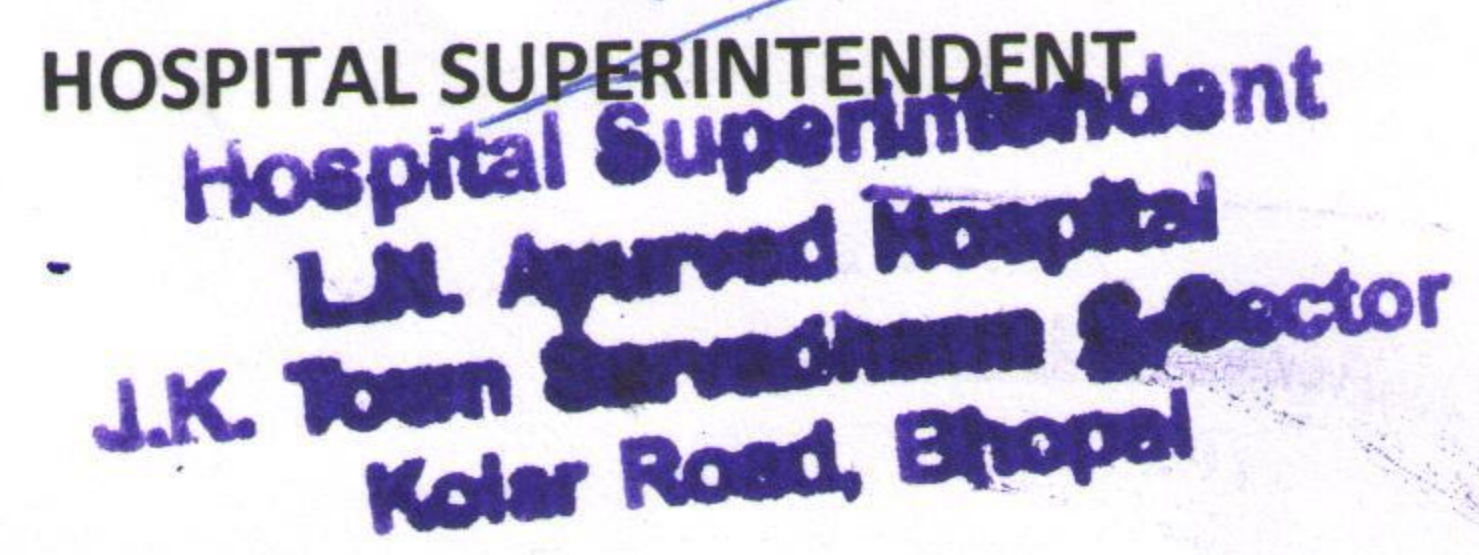 HOSPITAL SUPERINTENDENT
Hospital Superintendent
L.N. Ayurved Hospital
J.K. Town Sarvadharm C-Sector
Kolar Road, Bhopal